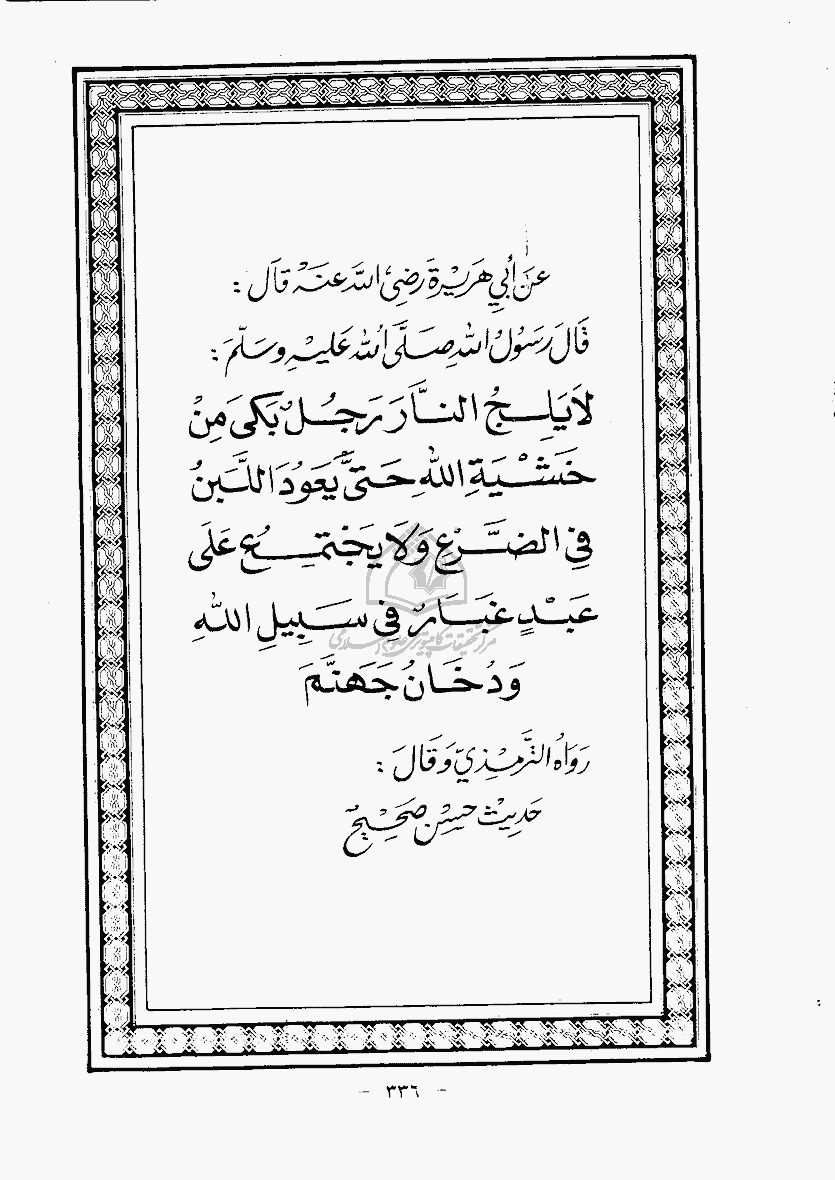 عَنْ أَبِي هُرَيْرَةَ رَضِيَ اللَّهُ عَنْهُ قَالَ :
قَالَ رَسُولُ اللهِ صَلَّى اللهُ عَلَيْهِ وَسَلَّمَ :
لَا يَلِجُ النَّارَ رَجُلٌ بَكَى مِنْ
خَشْيَةِ اللهِ حَتَّى يَعُودَ اللَّبَنُ
فِي الضَّرْعِ وَلَا يَجْتَمِعُ عَلَى
عَبْدٍ غُبَارٌ فِي سَبِيلِ اللهِ
وَدُخَانُ جَهَنَّمَ
رَوَاهُ التِّرْمِذِيّ وَقَالَ :
حَدِيثٌ حَسَنٌ صَحِيحٌ
مرکز تحقیقات کامپیوتری علوم اسلامی
- ٣٣٦ -